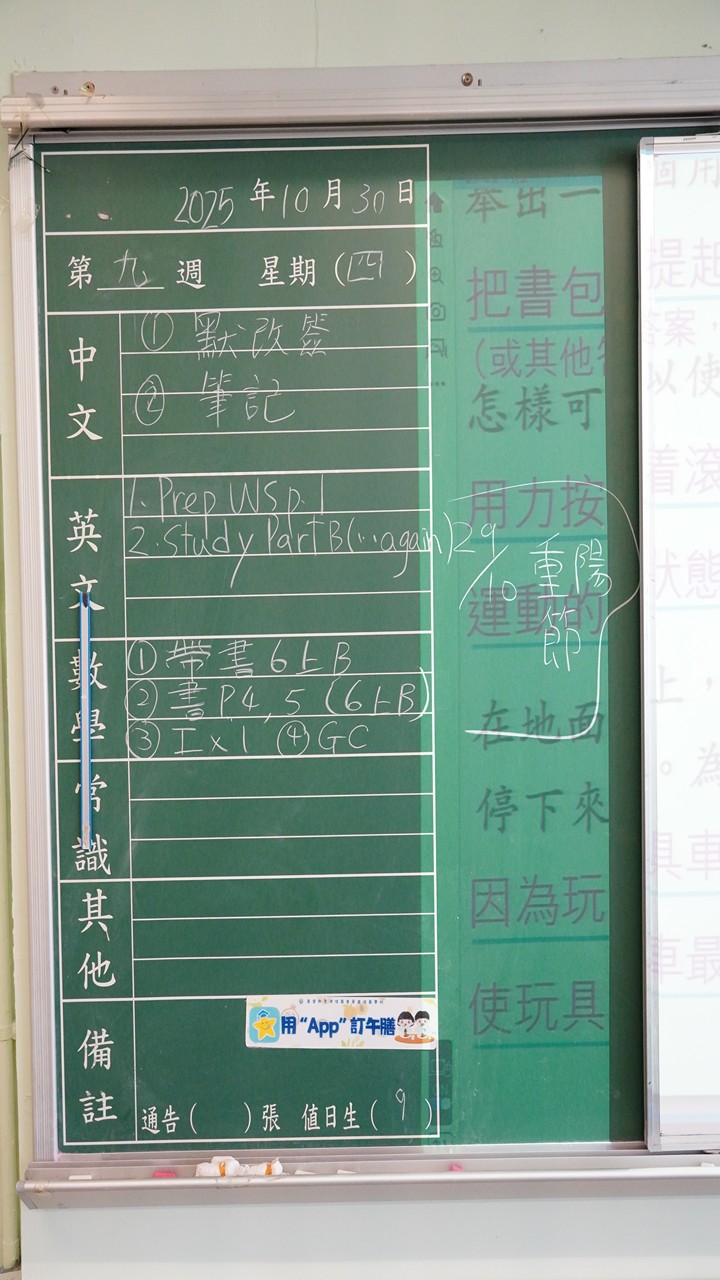 2025年10月30日
第九週 星期(四)
中文
① 默改簽
② 筆記
英文
1. Prep WS p.1
2. Study Part B (...again)
29/10 重陽節
數學
① 帶書6上B
② 書P.4,5 (6上B)
③ I x 1 ④ GC
常識
其他
備註
用“App”訂午膳
通告( )張 值日生( 9 )
舉出一
把書包
(或其他
怎樣可
用力按
運動的
在地面
停下來
因為玩
使玩具
個用
提起
答案,
以使
着滾
狀態
上,
。為
具車
車最